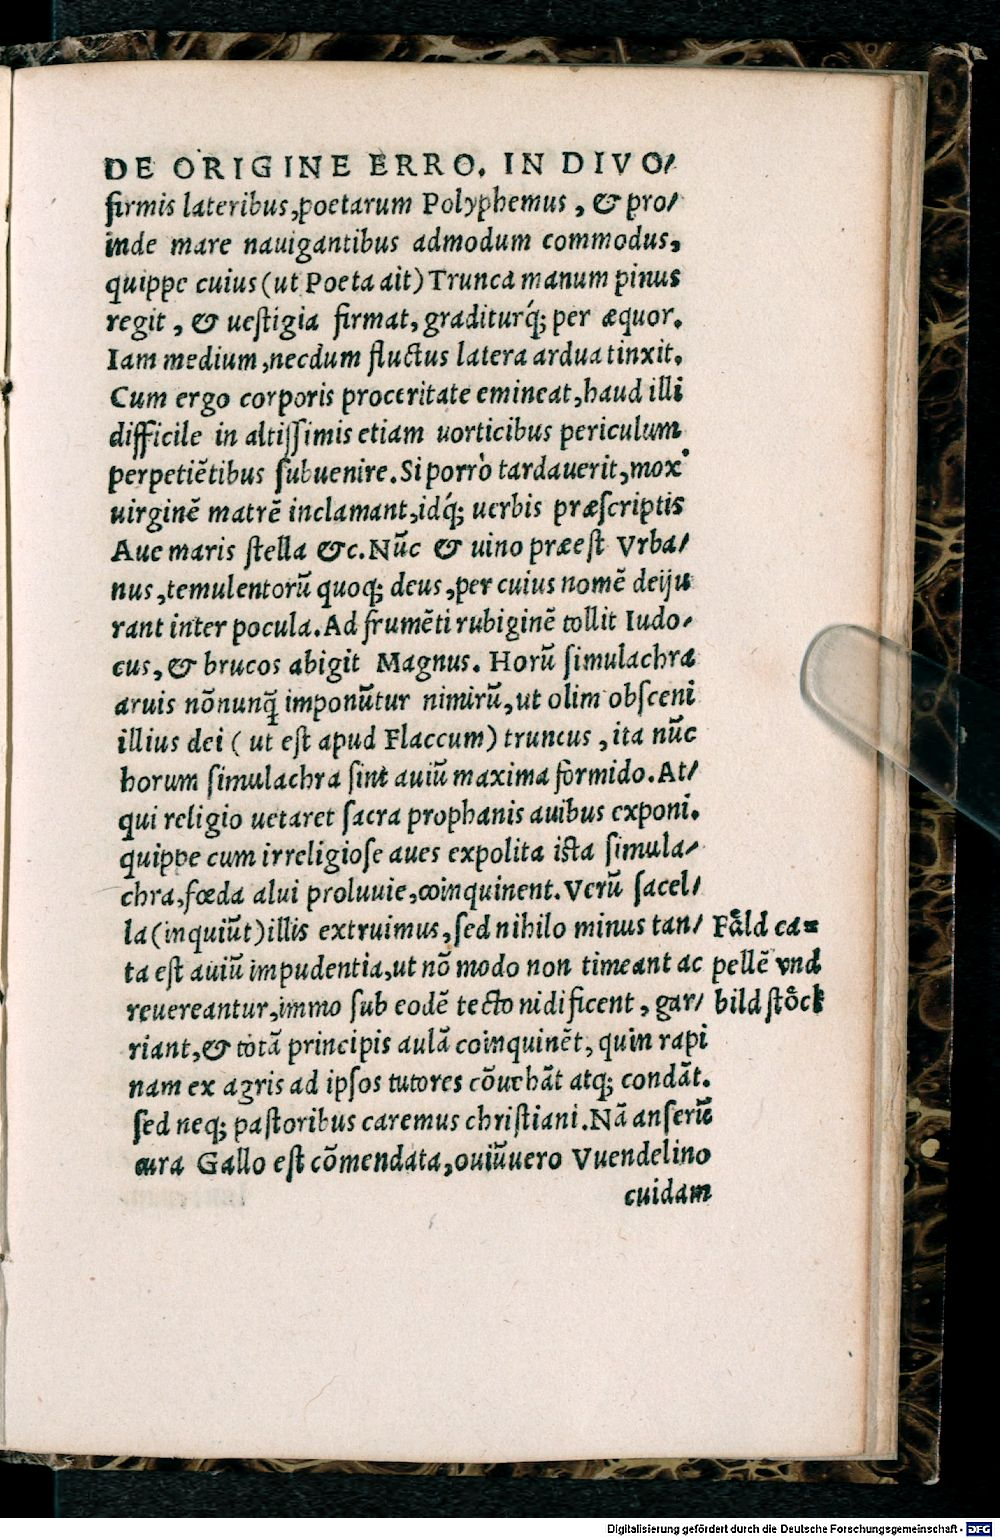 DE ORIGINE ERRO. IN DIVO/
firmis lateribus, poetarum Polyphemus, & pro/
inde mare nauigantibus admodum commodus,
quippe cuius (ut Poeta ait) Trunca manum pinus
regit, & uestigia firmat, graditurq́; per æquor.
Iam medium, necdum fluctus latera ardua tinxit.
Cum ergo corporis proceritate emineat, haud illi
difficile in altissimis etiam uorticibus periculum
perpetiẽtibus subuenire. Si porrò tardauerit, mox
uirginẽ matrẽ inclamant, idq́; uerbis præscriptis
Aue maris stella &c. Nũc & uino præest Vrba/
nus, temulentorũ quoq; deus, per cuius nomẽ deiju
rant inter pocula. Ad frumẽti rubiginẽ tollit Iudo/
cus, & brucos abigit Magnus. Horũ simulachra
aruis nõnunq̃ imponũtur nimirũ, ut olim obsceni
illius dei (ut est apud Flaccum) truncus, ita nũc
horum simulachra sint auiũ maxima formido. At/
qui religio uetaret sacra prophanis auibus exponi.
quippe cum irreligiose aues expolita ista simula/
chra, fœda alui proluuie, coinquinent. Verũ sacel/
la (inquiũt) illis extruimus, sed nihilo minus tan/
ta est auiũ impudentia, ut nõ modo non timeant ac
reuereantur, immo sub eodẽ tecto nidificent, gar/
riant, & totã principis aulã coinquinẽt, quin rapi
nam ex agris ad ipsos tutores cõuehãt atq; condãt.
sed neq; pastoribus caremus christiani. Nã anserũ
cura Gallo est cõmendata, ouiũ uero Vuendelino
cuidam
Faͤld ca=
pellẽ vnd
bild stoͤck
Digitalisierung gefördert durch die Deutsche Forschungsgemeinschaft - DFG